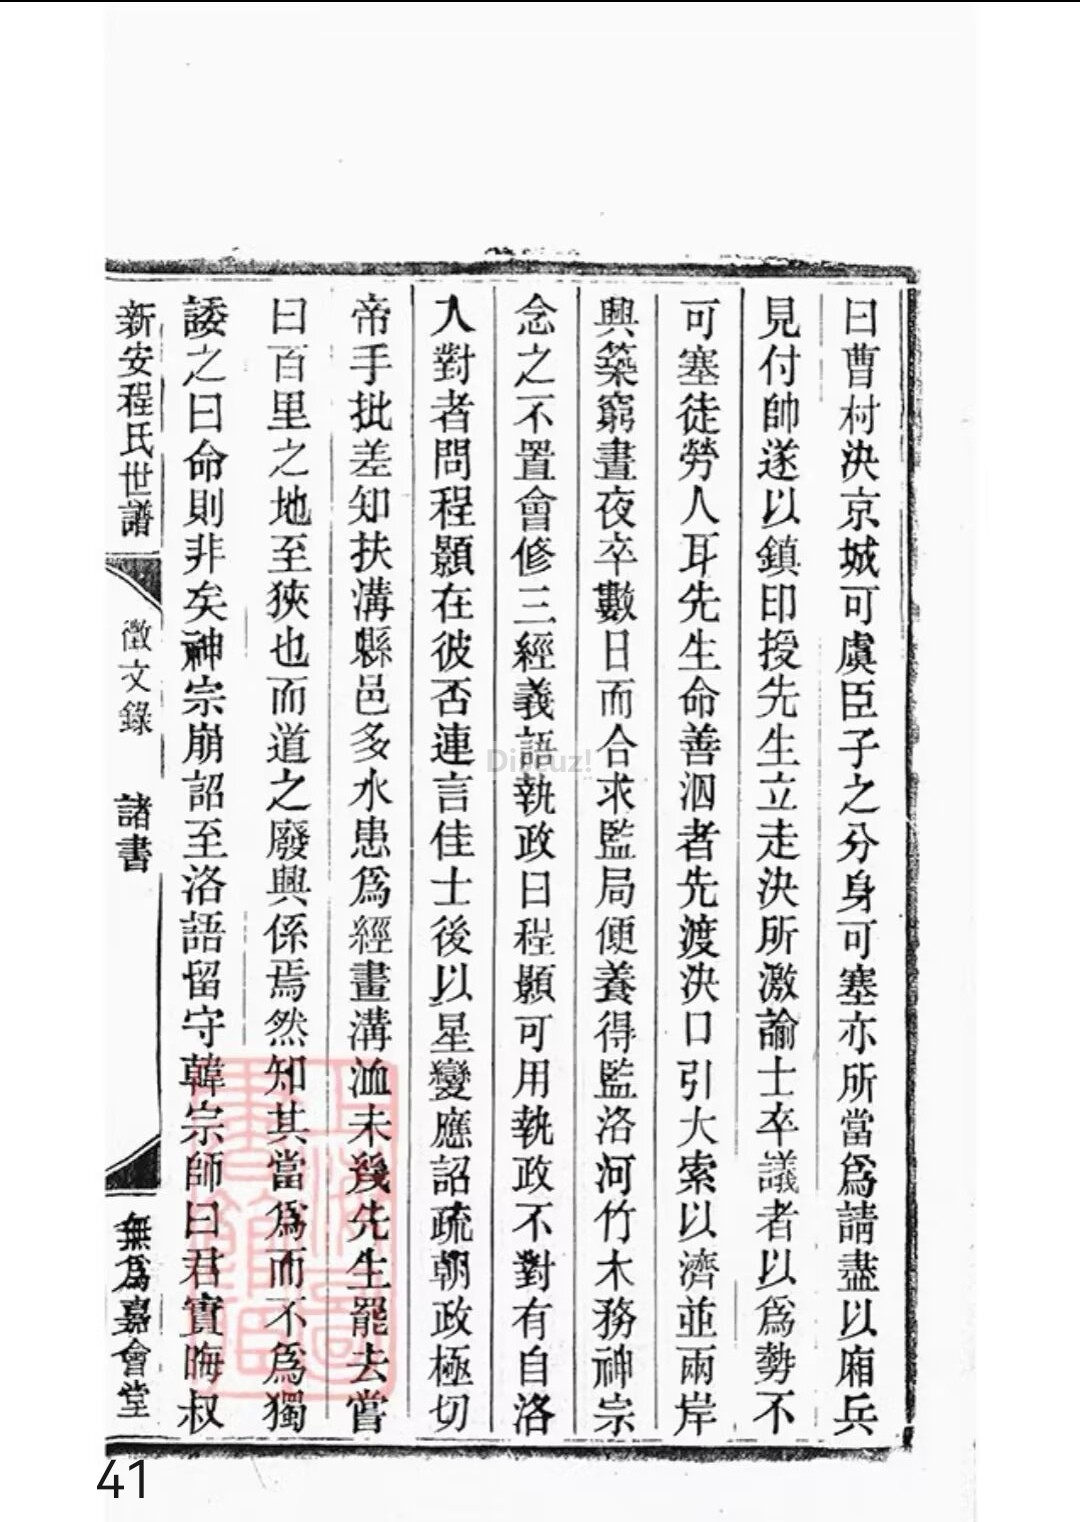 曰曹村決京城可虞臣子之分身可塞亦所當爲請盡以廂兵
見付帥遂以鎮印授先生立走決所激諭士卒議者以爲勢不
可塞徒勞人耳先生命善泅者先渡決口引大索以濟並兩岸
興築窮晝夜卒數日而合求監局便養得監洛河竹木務神宗
念之不置會修三經義語執政曰程顥可用執政不對有自洛
入對者問程顥在彼否連言佳士後以星變應詔疏朝政極切
帝手批差知扶溝縣邑多水患爲經畫溝洫未幾先生罷去嘗
曰百里之地至狹也而道之廢興係焉然知其當爲而不爲獨
諉之曰命則非矣神宗崩詔至洛語留守韓宗師曰君實晦叔
新安程氏世譜
徵文錄 諸書
無爲嘉會堂
Discuz!
上海圖書館藏
41